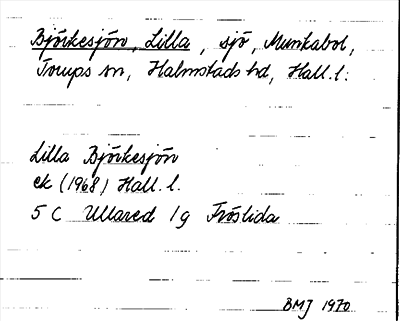 Björkesjön, Lilla, sjö, Munkabol,
Torups sn, Halmstads hd, Hall. l.
Lilla Björkesjön
ek (1968) Hall. l.
5 C Ullared 1g Fröslida
BMJ 1970